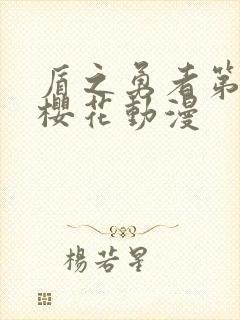 盾之勇者第
櫻花動漫
楊若星